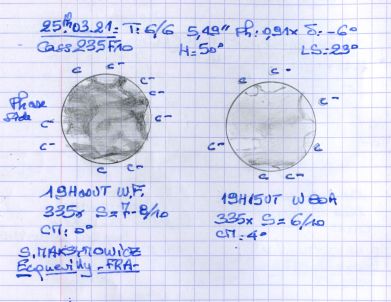 25th.03.21: T: 6/6 5,49" Ph: 0,91x δ: -6°
Cass 235 F10 H=50° LS=23°
c c-
c c•
c- c-
Phase side
c- c-
c- c-
c c-
c c-
19H00UT W.F.
335x S=7-8/10
CM: 0°
19H15UT W80A
335x S=6/10
CM=4°
S. MAKSYMOWICZ
Ecquevilly - FRA-